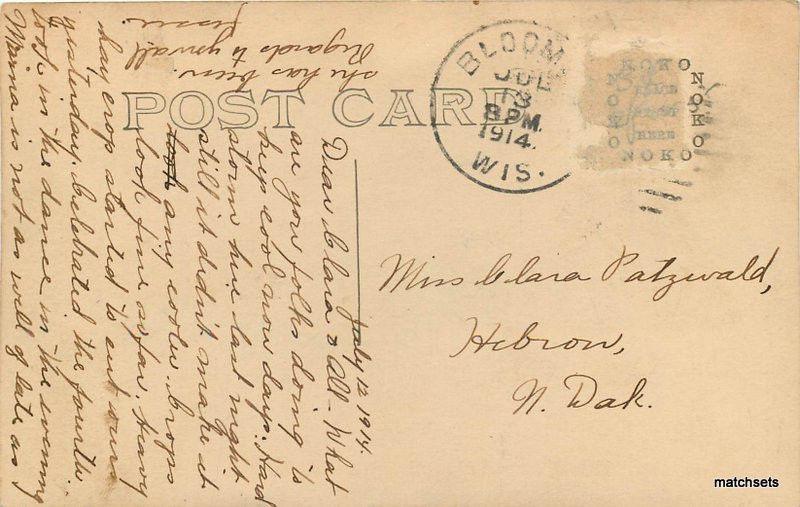 POST CARD
BLOOM
JUL
13
8 PM.
1914.
WIS.
NOKO
NOKO
NOKO
NOKO
PLACE
STAMP
HERE
July 12 1914.
Dear Clara & All - What
are you folks doing is
keep cool now days. Hard
storm here last night
still it didn't make it
any cooler. Crops
look fine as far. Heavy
hay crop started to cut ours
yesterday. Celebrated the fourth
took in the dance in the evening
Minna is not as well of late as
she has been.
Regards to you all
Miss Clara Patzwald,
Hebron,
N. Dak.
matchsets